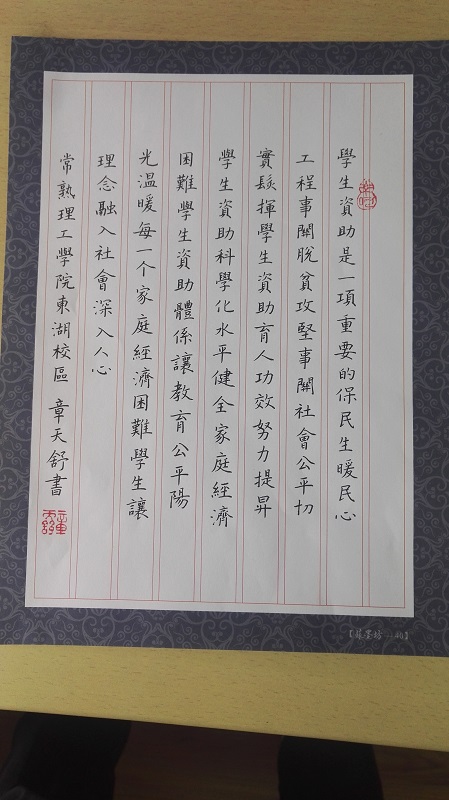 學生資助是一項重要的保民生暖民心
工程事關脫貧攻堅事關社會公平切
實髮揮學生資助育人功效努力提昇
學生資助科學化水平健全家庭經濟
困難學生資助體係讓教育公平陽
光溫暖每一个家庭經濟困難學生讓
理念融入社會深入人心
常熟理工學院東湖校區 章天舒書
章天舒